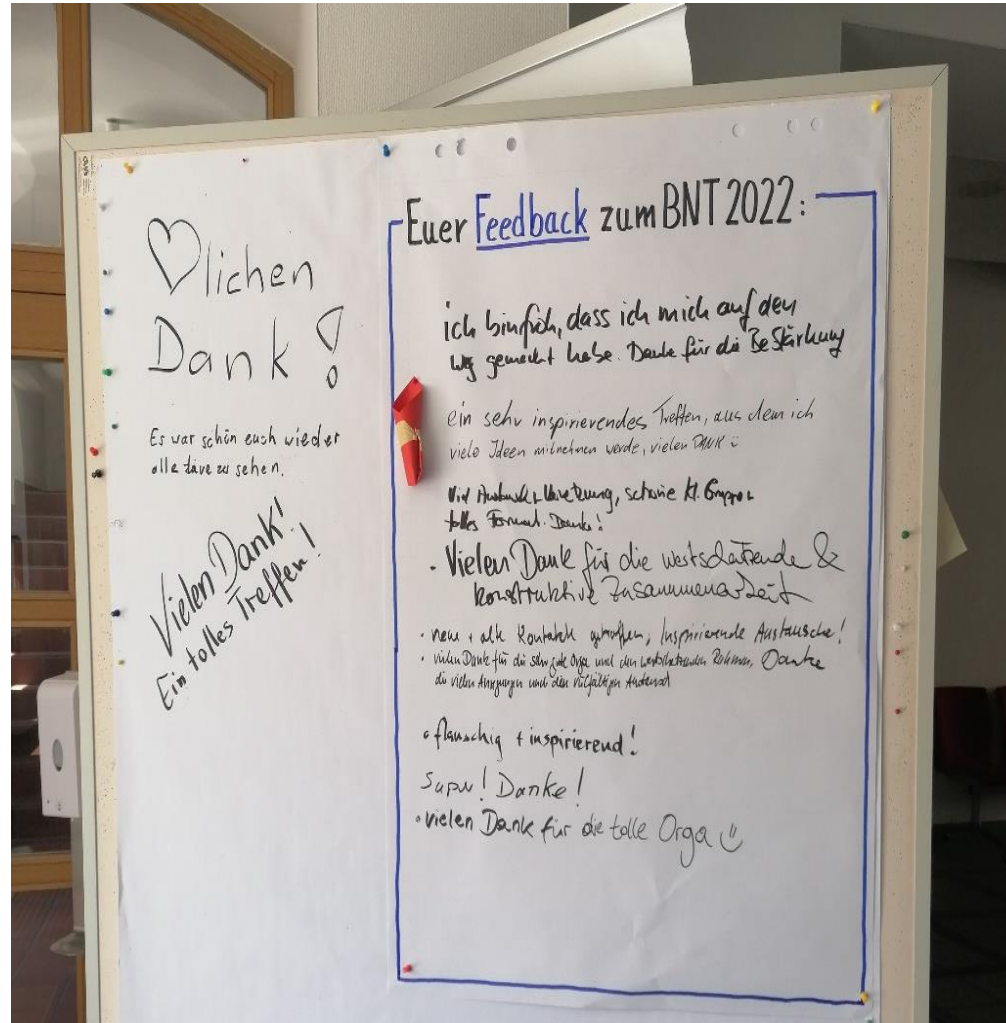 ♡lichen
Dank!
Es war schön euch wieder
alle live zu sehen.
Vielen Dank!
Ein tolles Treffen!
Euer Feedback zum BNT 2022:
ich bin froh, dass ich mich auf den
Weg gemacht habe. Danke für die Bestärkung
ein sehr inspirierendes Treffen, aus dem ich
viele Ideen mitnehmen werde, vielen DANK
Viel Austausch + Vernetzung, schöne kl. Gruppen
tolles Format. Danke!
• Vielen Dank für die wertschätzende &
konstruktive Zusammenarbeit
• neue + alte Kontakte getroffen, Inspirierende Austausche!
• vielen Dank für die sehr gute Orga und den wertschätzenden Rahmen, Danke
die vielen Anregungen und den vielfältigen Austausch
• flauschig + inspirierend!
Super! Danke!
• vielen Dank für die tolle Orga ☺